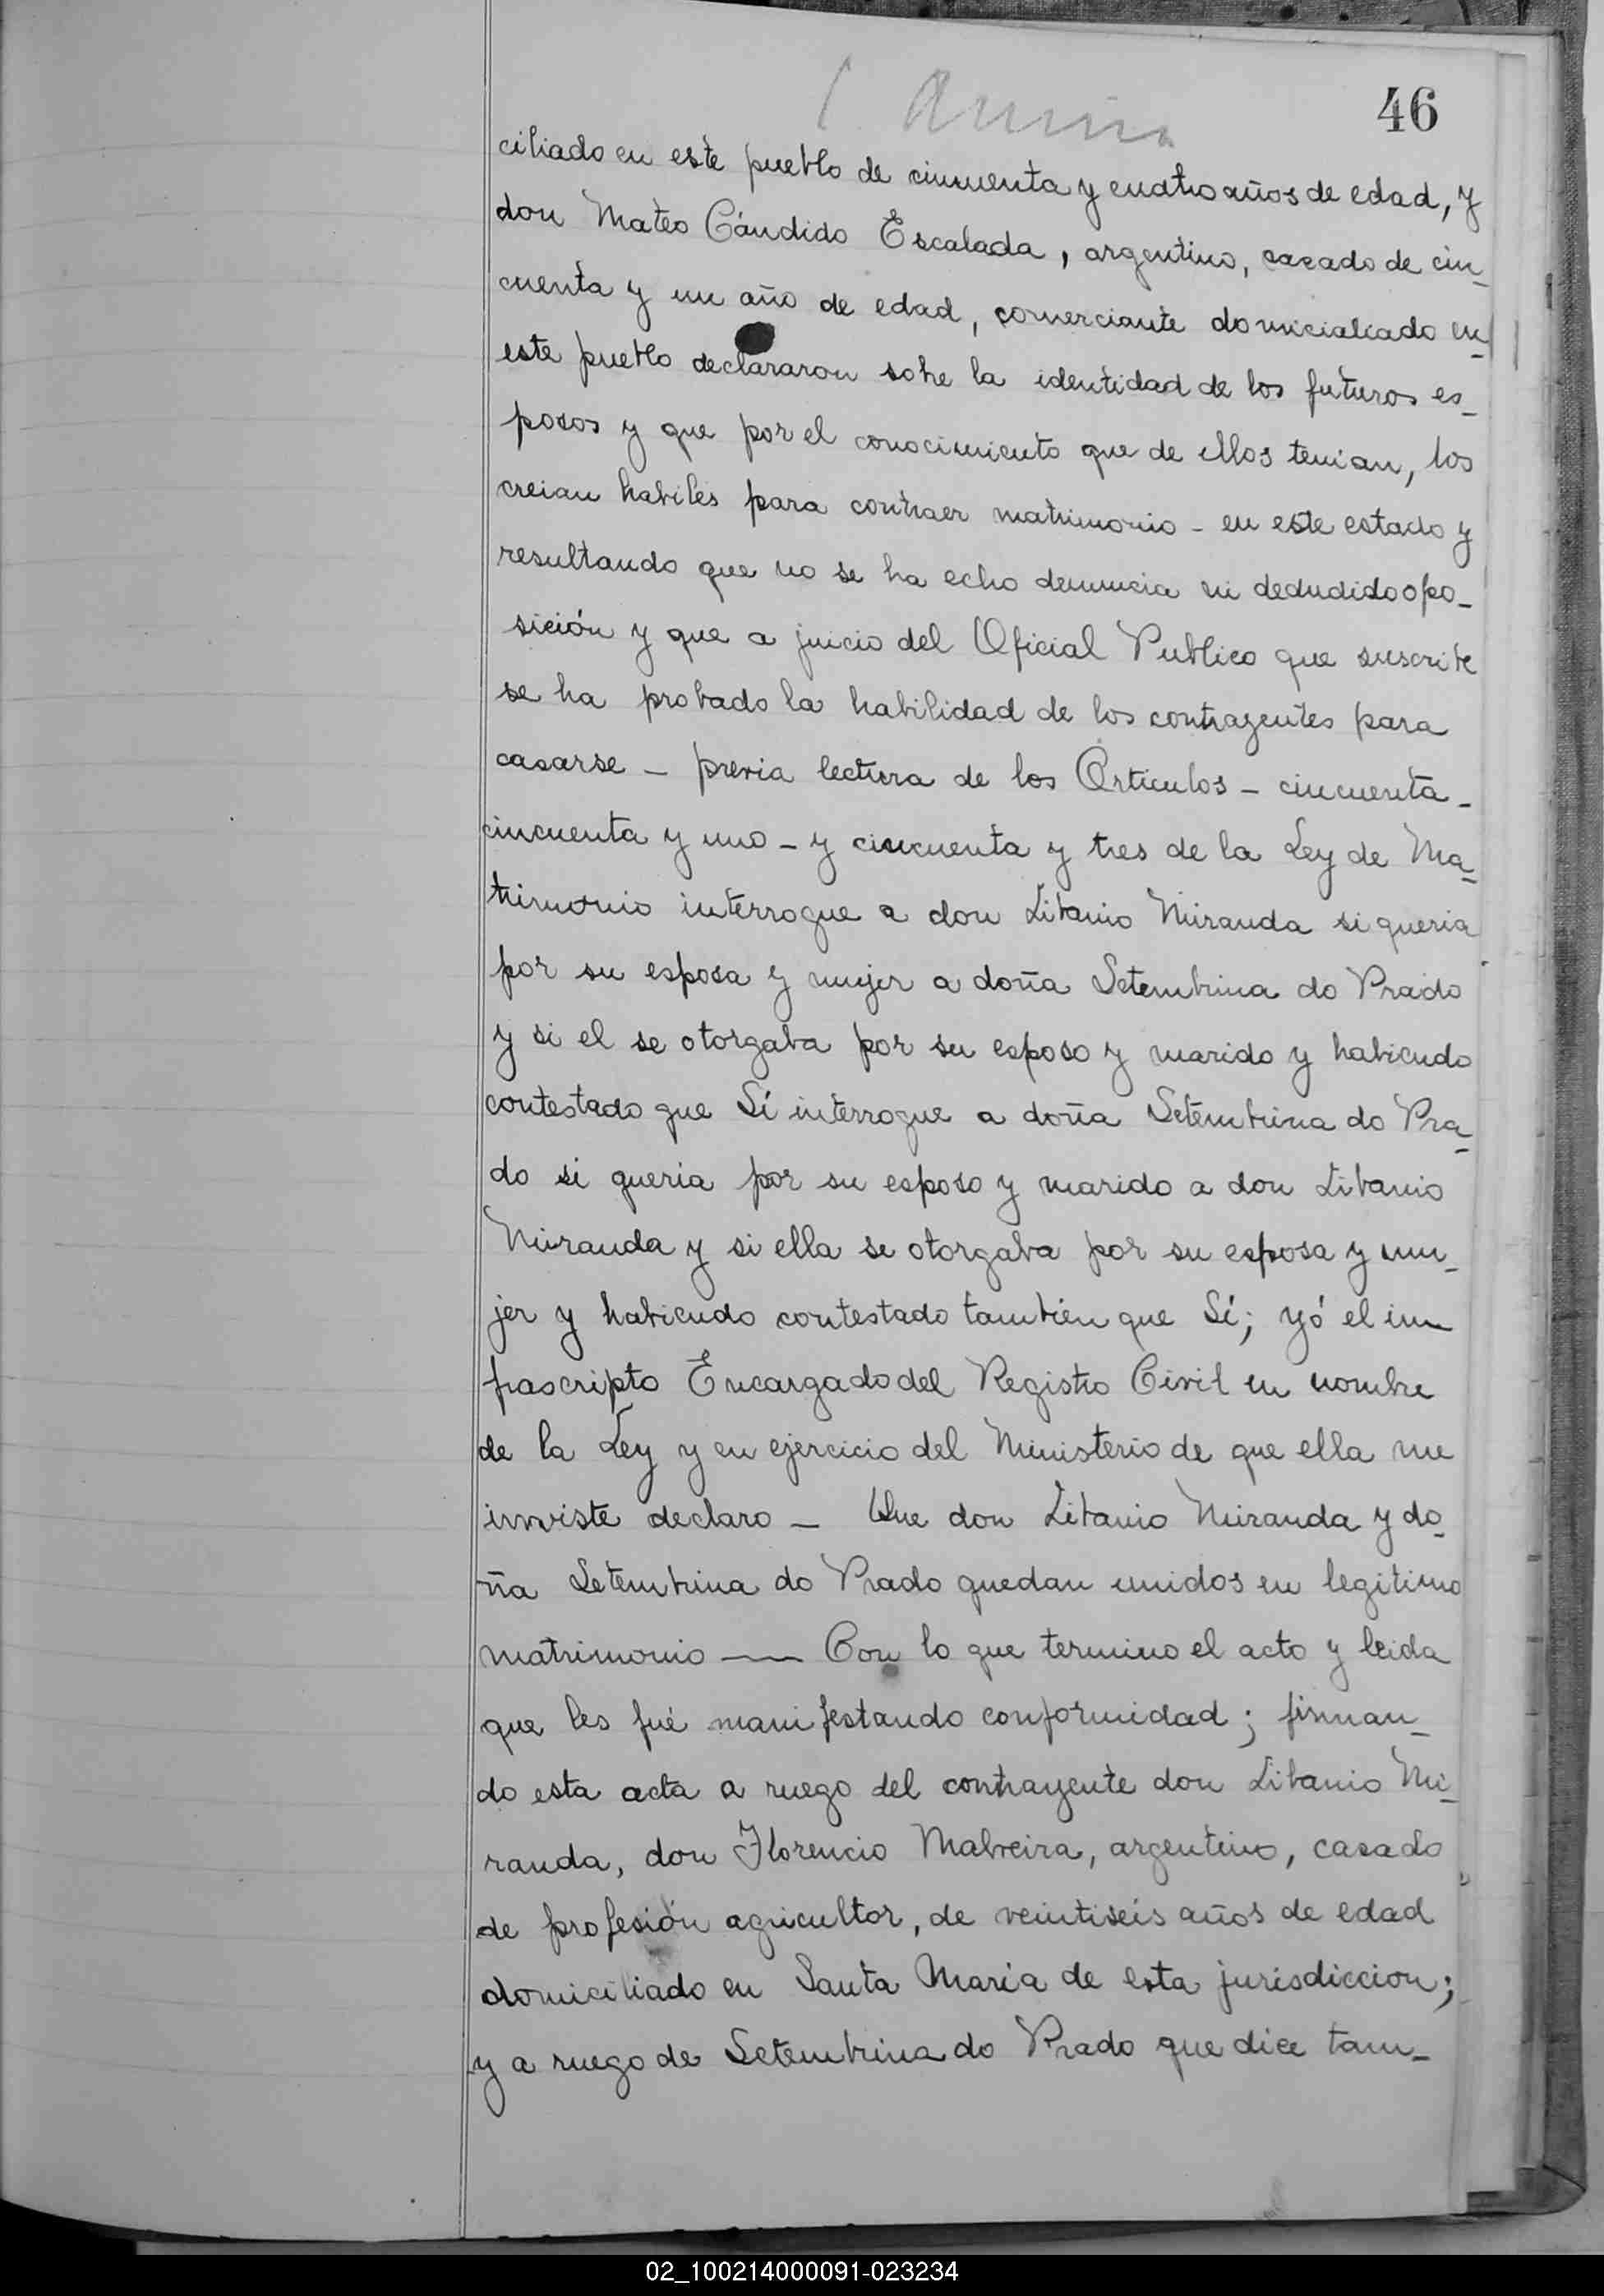 46
ciliado en este pueblo de cincuenta y cuatro años de edad, y
don Mateo Cándido Escalada, argentino, casado de cin-
cuenta y un año de edad, comerciante domicialiado en
este pueblo declararon sobre la identidad de los futuros es-
posos y que por el conocimiento que de ellos tenian, los
creian habiles para contraer matrimonio - en este estado y
resultando que no se ha echo denuncia ni dedudido opo-
sición y que a juicio del Oficial Publico que suscribe
se ha probado la habilidad de los contragentes para
casarse - previa lectura de los Articulos - cincuenta -
cincuenta y uno - y cincuenta y tres de la Ley de Ma-
trimonio interrogue a don Libanio Miranda si queria
por su esposa y mujer a doña Setembrina do Prado
y si el se otorgaba por su esposo y marido y habiendo
contestado que Sí interrogue a doña Setembrina do Pra-
do si queria por su esposo y marido a don Libanio
Miranda y si ella se otorgaba por su esposa y mu-
jer y habiendo contestado tambien que Sí; yó el in-
frascripto Encargado del Registro Civil en nombre
de la Ley y en ejercicio del Ministerio de que ella me
inviste declaro - Que don Libanio Miranda y do-
ña Setembrina do Prado quedan unidos en legitimo
matrimonio — Con lo que termino el acto y leida
que les fué manifestando conformidad; firman-
do esta acta a ruego del contrayente don Libanio Mi-
randa, don Florencio Malveira, argentino, casado
de profesión agricultor, de veintiséis años de edad
domiciliado en Santa Maria de esta jurisdiccion;
y a ruego de Setembrina do Prado que dice tam-
02_100214000091-023234